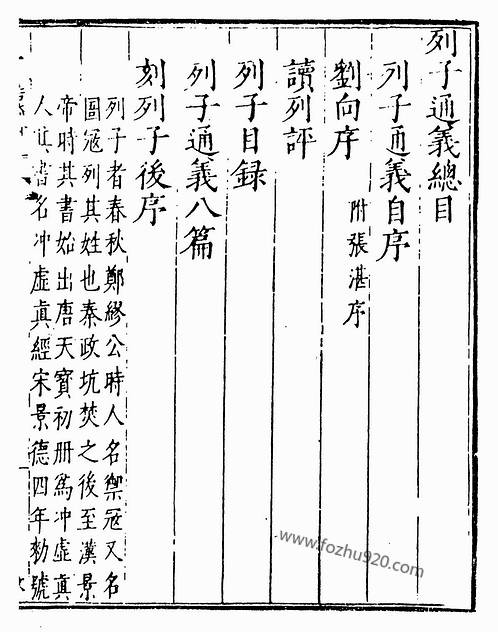 列子通義總目
列子通義自序
劉向序 附張湛序
讀列評
列子目録
列子通義八篇
刻列子後序
列子者春秋鄭繆公時人名禦冦又名
圄冦列其姓也秦政坑焚之後至漢景
帝時其書始出唐天寳初册爲冲虚真
人其書名冲虚真經宋景德四年勑號
www.fozhu920.com